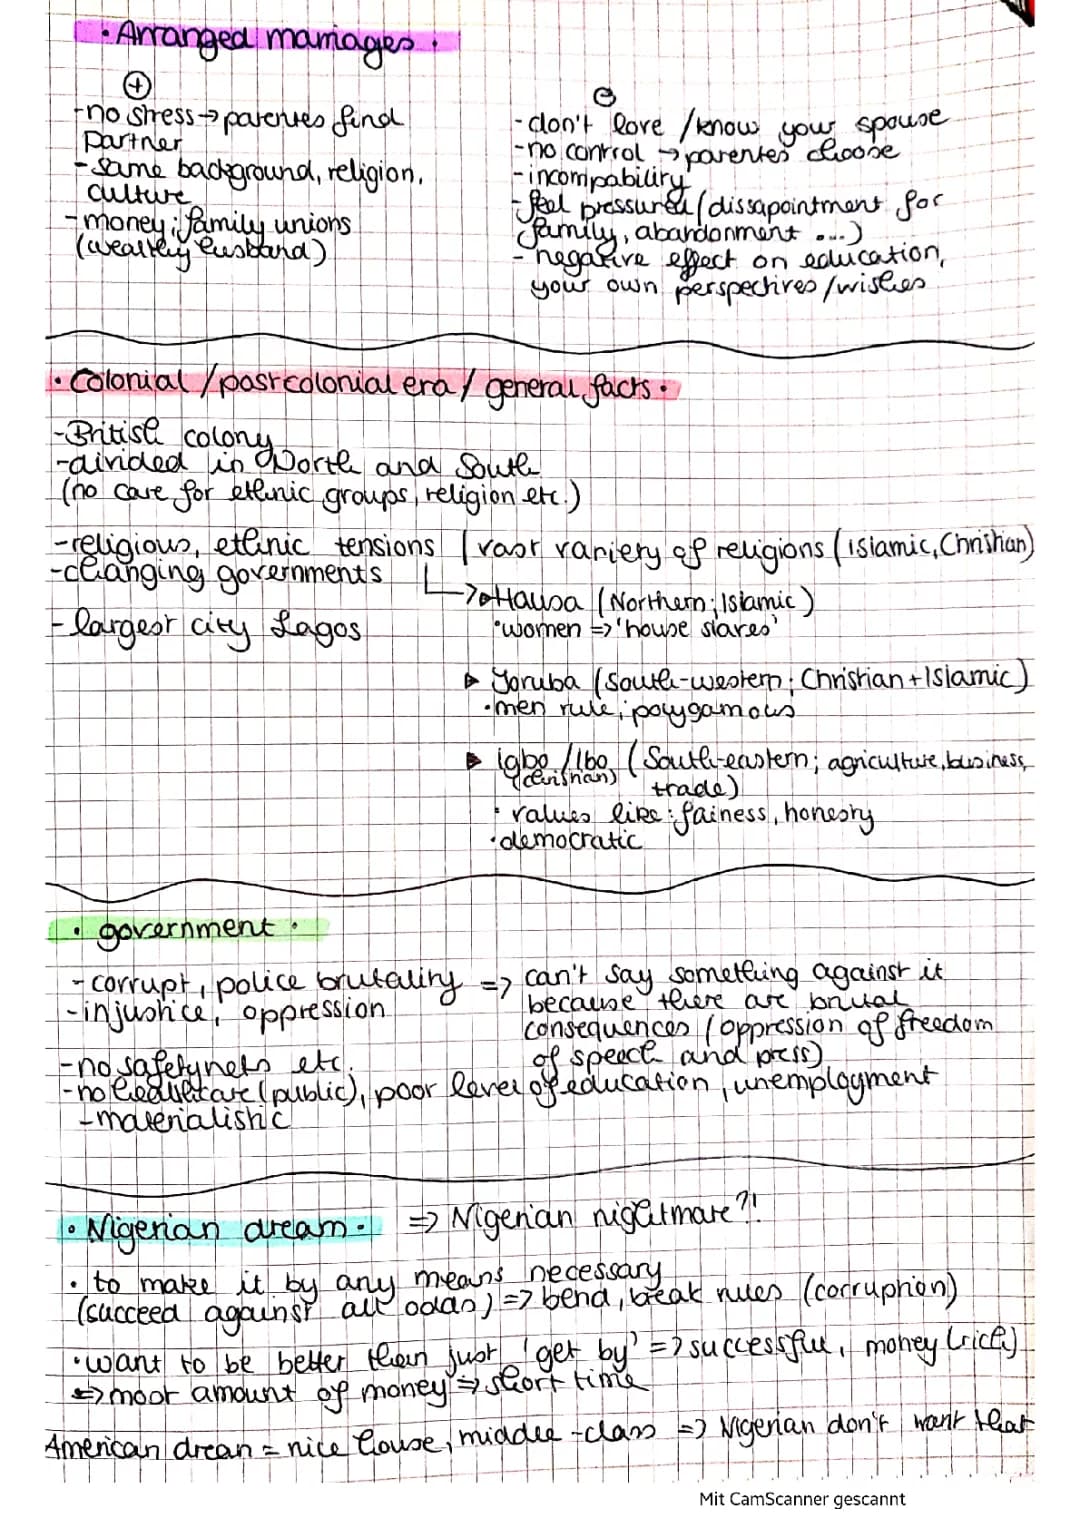 · Arranged marriages ·
+
-no stress → parentes find
partner
- same background, religion,
culture
- money; family unions
(wealthy husband)
-
- don't love / know your spouse
- no control → parentes choose
- incompability
- feel pressured (dissapointment for
family, abandonment ...)
- negative effect on education,
your own perspectives/wishes
· Colonial / postcolonial era / general facts ·
-British colony
-divided in North and South
(no care for ethnic groups, religion etc.)
-religious, ethnic tensions | vast variery of religions (islamic, Christian)
-changing governments
→ Hausa (Northern; Islamic)
• women => 'house slaves'
- largest city Lagos
▸ Yoruba (South-western; Christian + Islamic)
• men rule; polygamous
▸ igbo / Ibo (South-eastern; agriculture, business,
(christian) trade)
· values like: fainess, honesty
· democratic
· government ·
- corrupt, police brutality => can't say something against it
- injustice, oppression
because there are brutal
consequences (oppression of freedom
of speech and press)
- no safetynets etc.
- no healthcare (public), poor level of education, unemployment
- materialistic
· Nigerian dream · => Nigerian nightmare?!
· to make it by any means necessary
(succeed against all odds) => bend, break rules (corruption)
· want to be better then just 'get by' => successful, money (rich)
=> most amount of money => short time
American dream = nice house, middle-class => Nigerian don't want that
Mit CamScanner gescannt